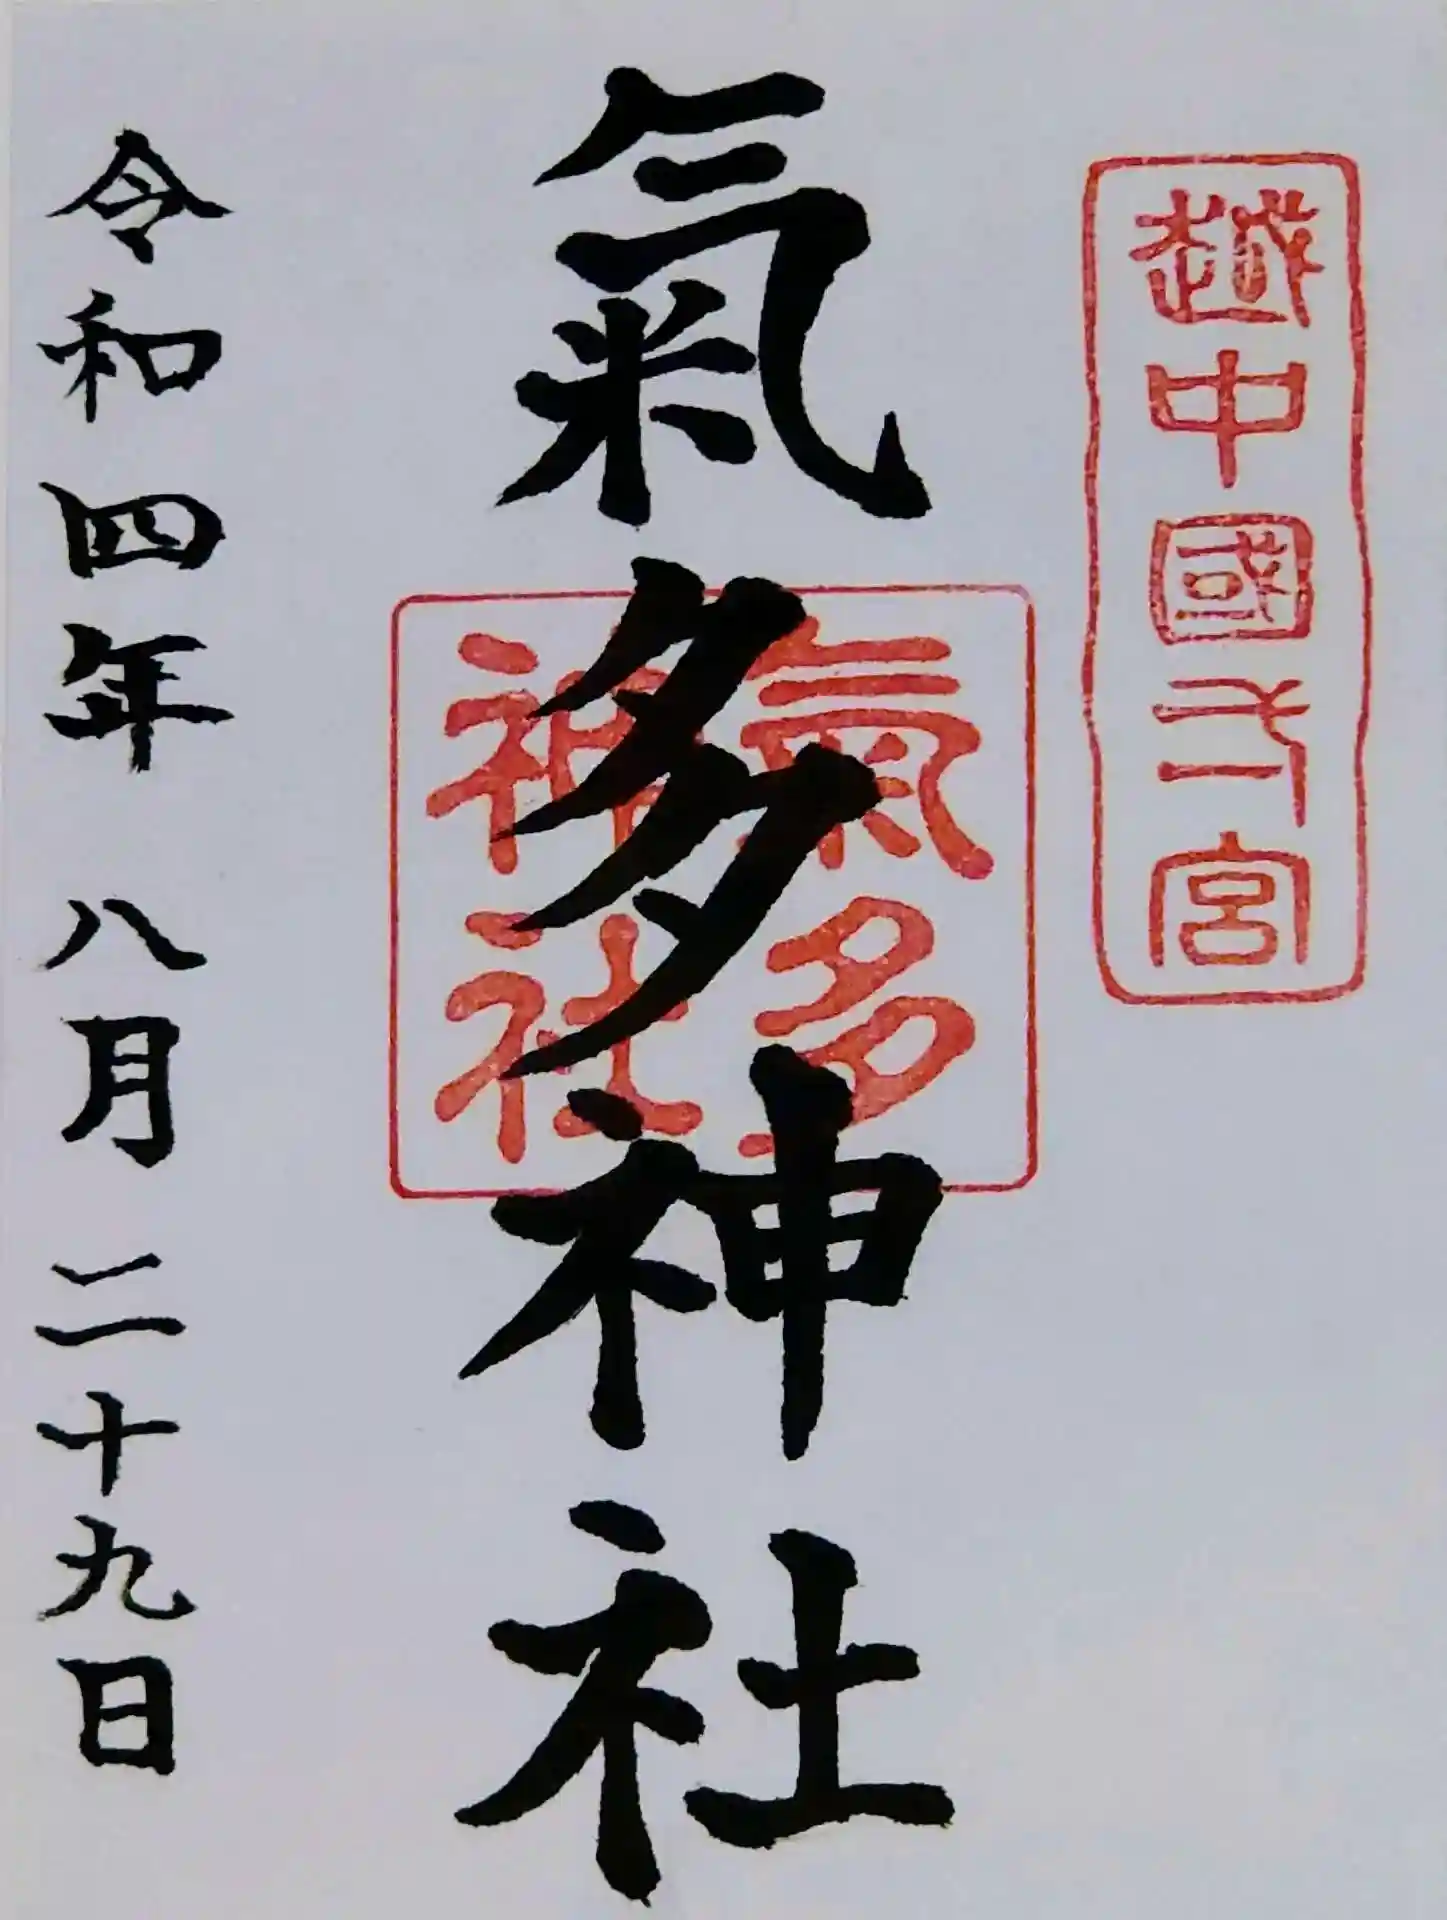 越中國一宮
氣多神社
氣多
神社
令和四年八月二十九日